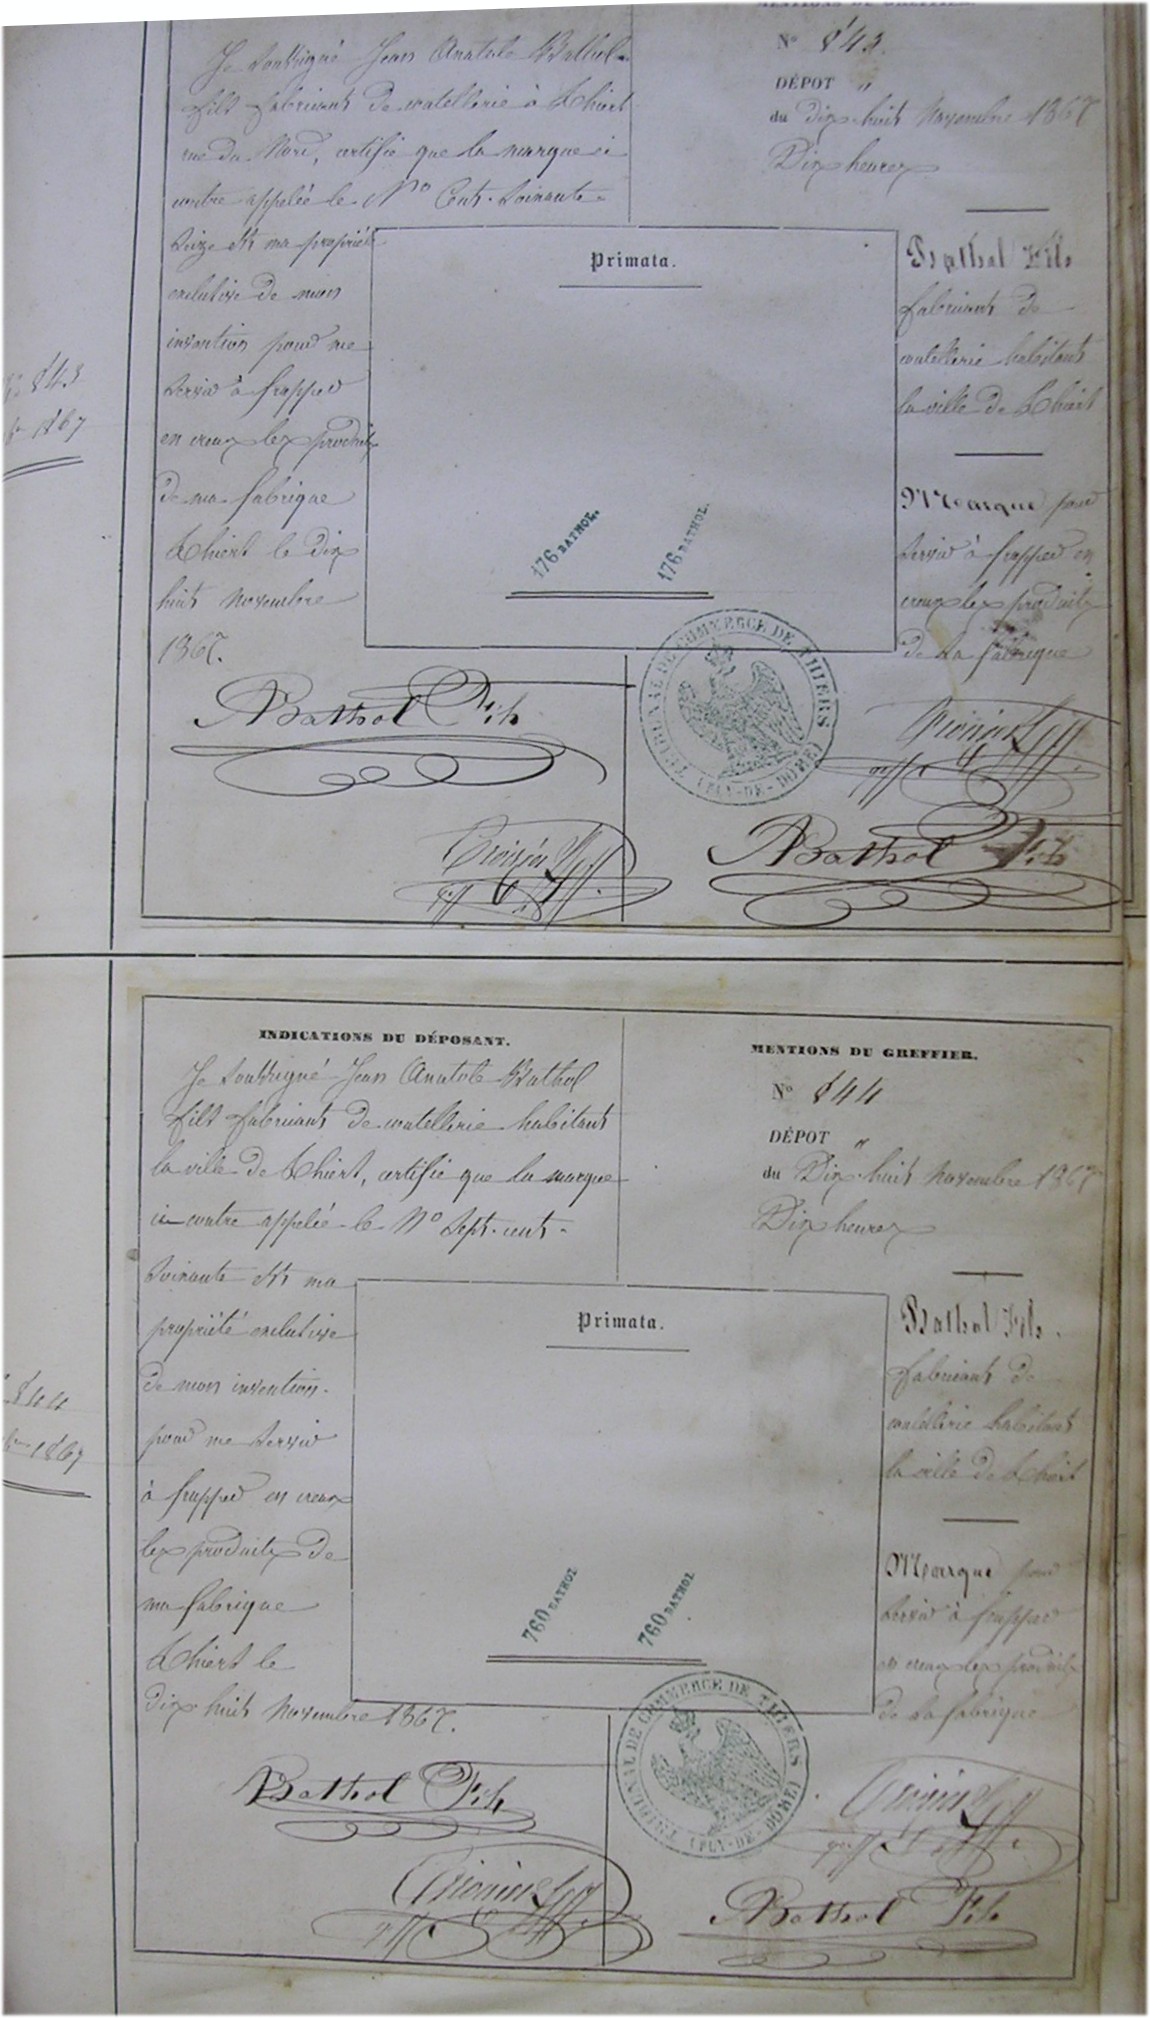 MENTIONS DU GREFFIER.
Je soussigné Jean Anatole Bathol
fils fabricant de coutellerie à Thiers
rue du Nord, certifie que la marque ci
contre appelée le No Cent-soixante-
seize est ma propriété
exclusive de mon
invention pour me
servir à frapper
en creux les produits
de ma fabrique
Thiers le dix
huit novembre
1867.
Bathol Fils
No 843.
DÉPOT
du dix-huit Novembre 1867
Dix heures
Primata.
176 BATHOL.
176 BATHOL.
Bathol Fils
fabricant de
coutellerie habitant
la ville de Thiers
Marque pour
servir à frapper en
creux les produits
de sa fabrique
TRIBUNAL DE COMMERCE DE THIERS
(PUY-DE-DOME)
Bathol Fils
843
1867
INDICATIONS DU DÉPOSANT.
Je soussigné Jean Anatole Bathol
fils fabricant de coutellerie habitant
la ville de Thiers, certifie que la marque
ci contre appelée le No Sept-cent-
soixante est ma
propriété exclusive
de mon invention
pour me servir
à frapper en creux
les produits de
ma fabrique
Thiers le
dix huit novembre 1867.
Bathol Fils
MENTIONS DU GREFFIER.
No 844
DÉPOT
du Dix huit novembre 1867
Dix heures
Primata.
760 BATHOL
760 BATHOL
Bathol Fils.
fabricant de
coutellerie habitant
la ville de Thiers
Marque pour
servir à frapper
en creux les produits
de sa fabrique
TRIBUNAL DE COMMERCE DE THIERS
(PUY-DE-DOME)
Bathol Fils
844
1867